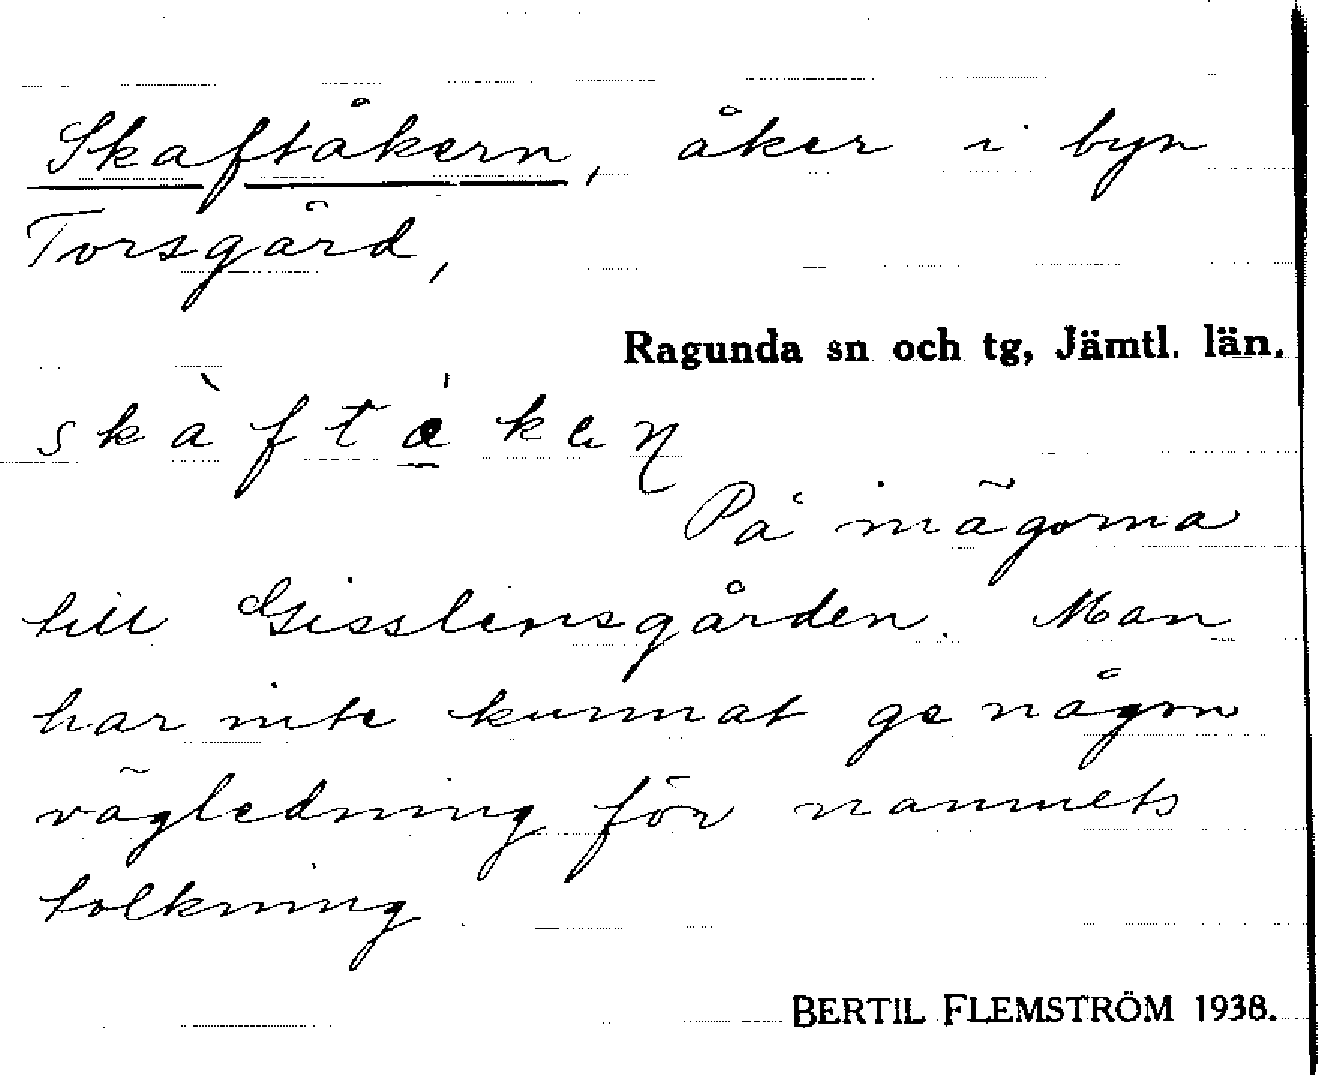 Skaftåkern, åker i byn
Torsgård,
Ragunda sn och tg, Jämtl. län.
På inägorna
till Gisslensgården. Man
har inte kunnat ge någon
vägledning för namnets
tolkning.
BERTIL FLEMSTRÖM 1938.